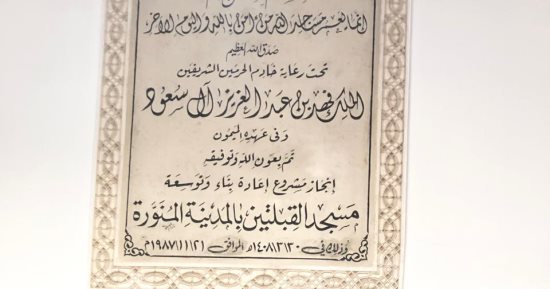 إنما يعمر مساجد الله من آمن بالله واليوم الآخر
صدق الله العظيم
تحت رعاية خادم الحرمين الشريفين
الملك فهد بن عبد العزيز آل سعود
وفي عهده الميمون
تم بعون الله وتوفيقه
إنجاز مشروع إعادة بناء وتوسعة
مسجد القبلتين بالمدينة المنورة
وذلك في ١٤٠٨/٣/٣٠هـ الموافق ١٩٨٧/١١/٢١م